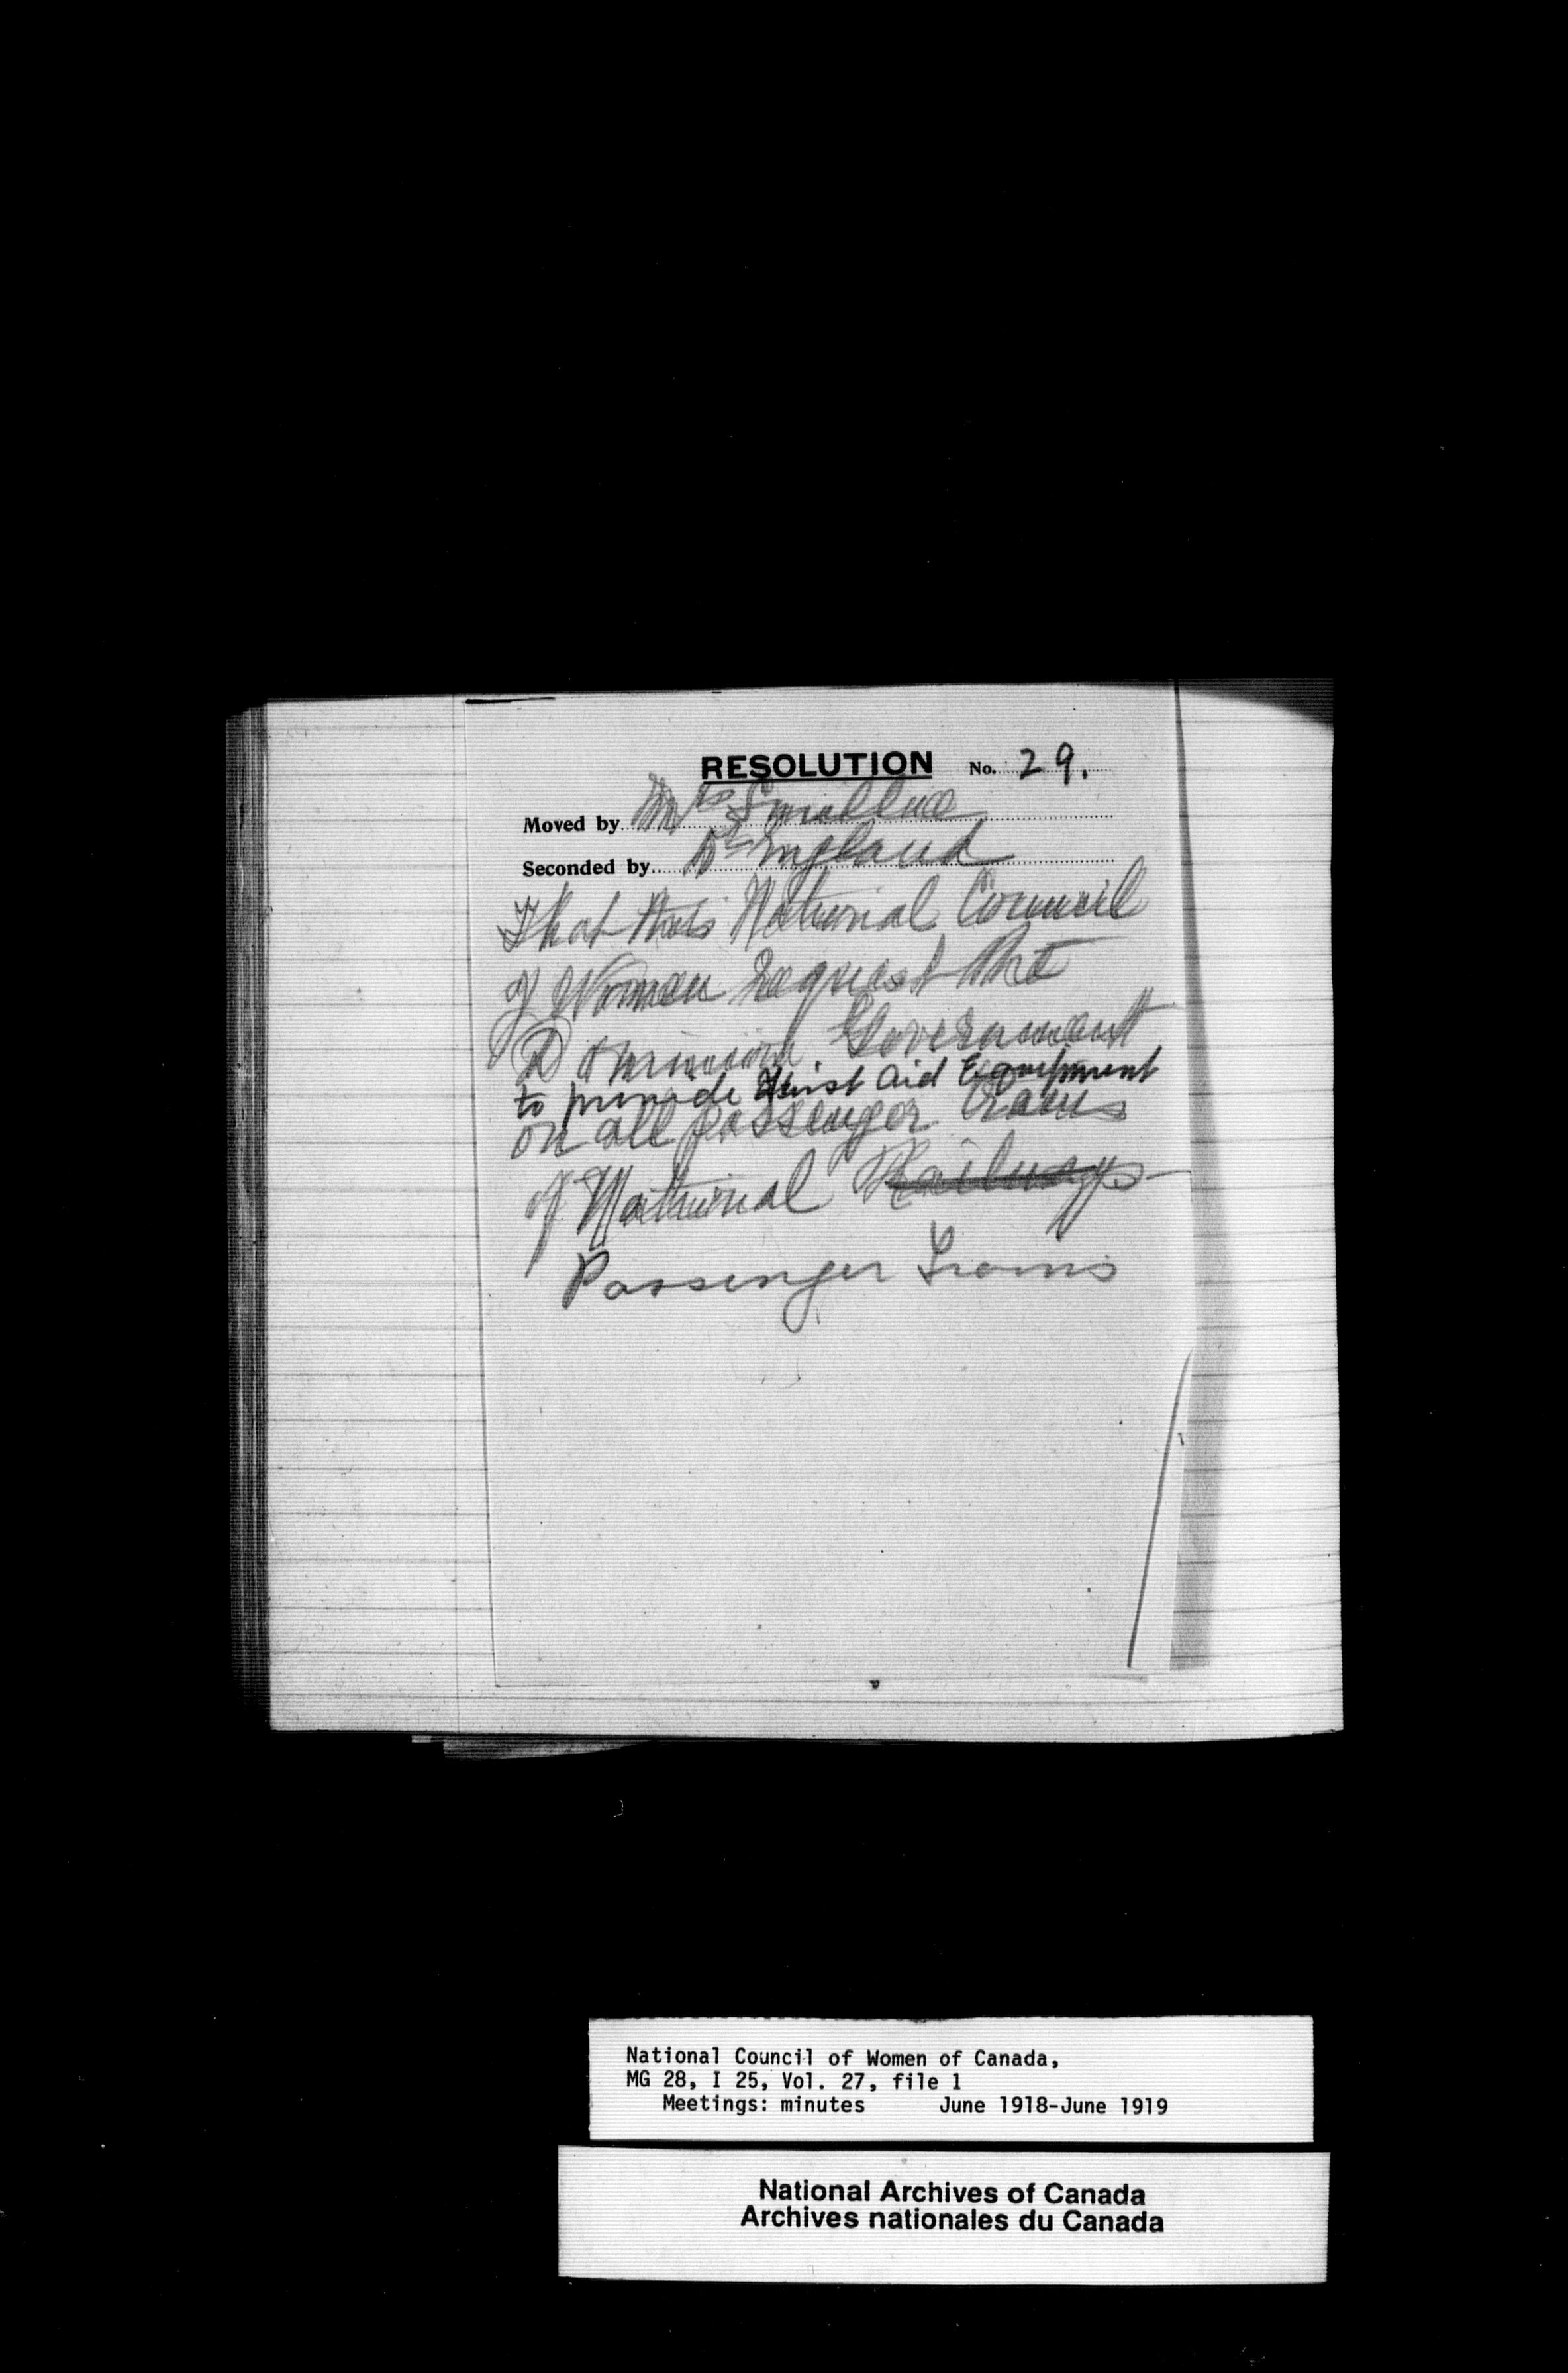 RESOLUTION No. 29.
Moved by Mrs Smillie
Seconded by Dr England
That this National Council
of Women request the
Dominion Government
to provide First Aid Equipment
on all passenger trains
of National Railways
Passenger Trains
National Council of Women of Canada,
MG 28, I 25, Vol. 27, file 1
Meetings: minutes June 1918-June 1919
National Archives of Canada
Archives nationales du Canada